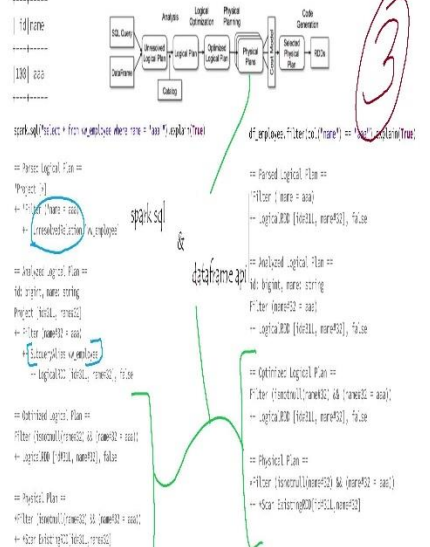 id|name
|108| aaa
Analysis
Logical
Optimization
Physical
Planning
Code
Generation
SQL Query
DataFrame
Unresolved
Logical Plan
Logical Plan
Optimized
Logical Plan
Physical
Plans
Cost Model
Selected
Physical
Plan
RDDs
Catalog
3
spark.sql("select * from vw_employee where name = 'aaa'").explain(True)
== Parsed Logical Plan ==
'Project [*]
+- 'Filter ('name = aaa)
+- 'UnresolvedRelation `vw_employee`
== Analyzed Logical Plan ==
id: bigint, name: string
Project [id#31L, name#32]
+- Filter (name#32 = aaa)
+- SubqueryAlias vw_employee
+- LogicalRDD [id#31L, name#32], false
== Optimized Logical Plan ==
Filter (isnotnull(name#32) && (name#32 = aaa))
+- LogicalRDD [id#31L, name#32], false
== Physical Plan ==
*Filter (isnotnull(name#32) && (name#32 = aaa))
+- *Scan ExistingRDD[id#31L,name#32]
spark sql
&
dataframe api
df_employee.filter(col("name") == "aaa").explain(True)
== Parsed Logical Plan ==
'Filter ('name = aaa)
+- LogicalRDD [id#31L, name#32], false
== Analyzed Logical Plan ==
id: bigint, name: string
Filter (name#32 = aaa)
+- LogicalRDD [id#31L, name#32], false
== Optimized Logical Plan ==
Filter (isnotnull(name#32) && (name#32 = aaa))
+- LogicalRDD [id#31L, name#32], false
== Physical Plan ==
*Filter (isnotnull(name#32) && (name#32 = aaa))
+- *Scan ExistingRDD[id#31L,name#32]